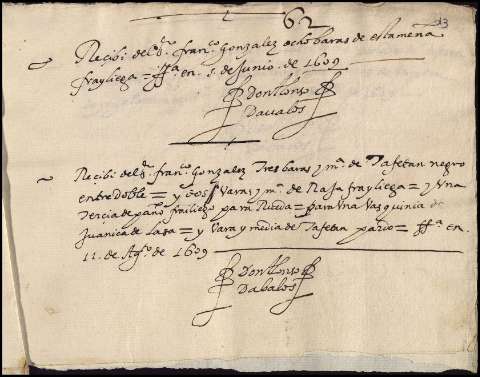 62
13
Recibi del Sr. franco. Gonzalez ocho baras de estameña
frayliega = ffa. en 5 de Junio de 1609
Don Alonso
Davalos
Recibi del Sr. franco. Gonzalez Tres baras y ma. de Tafetan negro
entredoble = y dos Varas y ma. de Raja frayliega = y Una
Tercia de paño frailiego para = para Una Vasquina de
Juanica de = y Vara y media de Tafetan pardo = ffa. en
11. de Agto. de 1609
Don Alonso
Dabalos